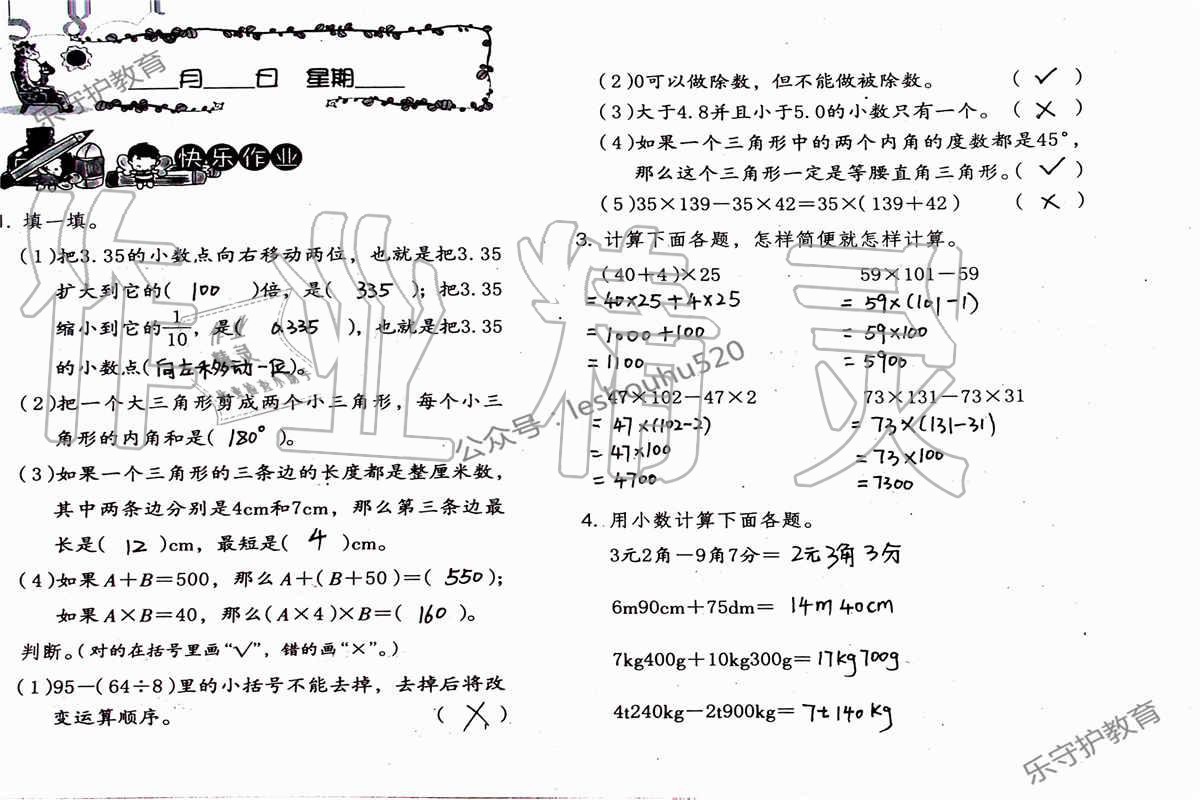 月 日 星期
快乐作业
1. 填一填。
(1)把3.35的小数点向右移动两位，也就是把3.35
扩大到它的( 100 )倍，是( 335 )；把3.35
缩小到它的1/10，是( 0.335 )，也就是把3.35
的小数点(向左移动一位)。
(2)把一个大三角形剪成两个小三角形，每个小三
角形的内角和是( 180° )。
(3)如果一个三角形的三条边的长度都是整厘米数，
其中两条边分别是4cm和7cm，那么第三条边最
长是( 12 )cm，最短是( 4 )cm。
(4)如果A+B=500，那么A+(B+50)=( 550 )；
如果A×B=40，那么(A×4)×B=( 160 )。
判断。(对的在括号里画“√”，错的画“×”。)
(1)95-(64÷8)里的小括号不能去掉，去掉后将改
变运算顺序。 ( × )
(2)0可以做除数，但不能做被除数。 ( √ )
(3)大于4.8并且小于5.0的小数只有一个。 ( × )
(4)如果一个三角形中的两个内角的度数都是45°，
那么这个三角形一定是等腰直角三角形。( √ )
(5)35×139-35×42=35×(139+42) ( × )
3. 计算下面各题，怎样简便就怎样计算。
(40+4)×25 59×101-59
=40×25+4×25 =59×(101-1)
=1000+100 =59×100
=1100 =5900
47×102-47×2 73×131-73×31
=47×(102-2) =73×(131-31)
=47×100 =73×100
=4700 =7300
4. 用小数计算下面各题。
3元2角-9角7分=2元3角3分
6m90cm+75dm=14m40cm
7kg400g+10kg300g=17kg700g
4t240kg-2t900kg=7t140kg
作业精灵
乐守护教育
公众号：leshouhu520
乐守护教育